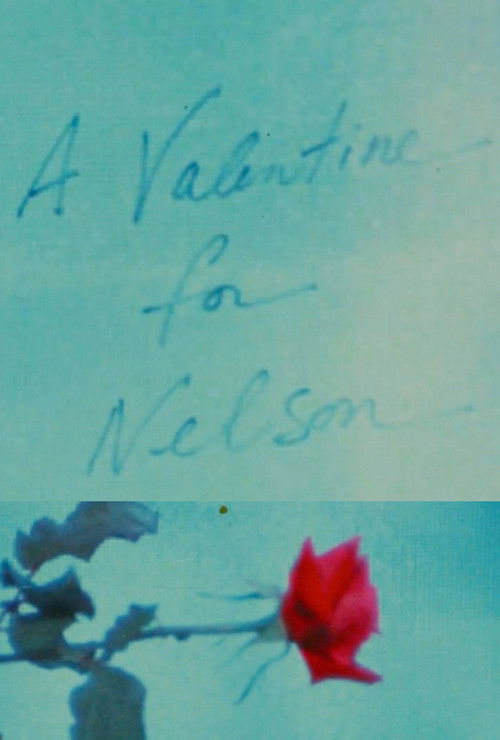 A Valentine
for
Nelson